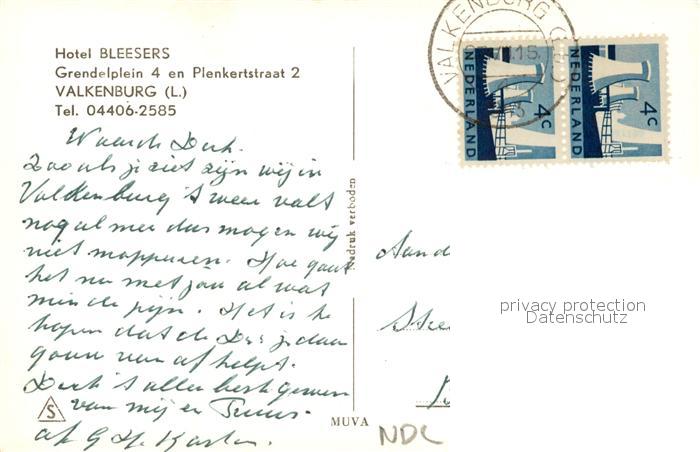 Hotel BLEESERS
Grendelplein 4 en Plenkertstraat 2
VALKENBURG (L.)
Tel. 04406-2585
Waarde Derk.
Zooals je ziet zijn wij in
Valkenburg 't weer valt
nog al mee dus mogen wij
niet mopperen. Hoe gaat
het nu met jou al wat
minder pijn. Het is te
hopen dat de Dr. je daar
gauw van af helpt.
Derk 't allerbeste gewen
van mij en Truus
S
MUVA
Nadruk verboden
VALKENBURG
NEDERLAND 4c
NEDERLAND 4c
Aan d
privacy protection
Datenschutz
NDL